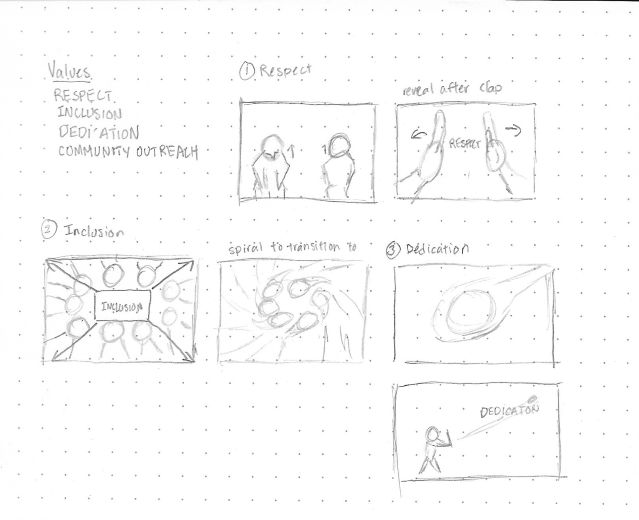 Values
RESPECT
INCLUSION
DEDICATION
COMMUNITY OUTREACH
① Respect
reveal after clap
RESPECT
② Inclusion
INCLUSION
spiral to transition to
③ Dedication
DEDICATON